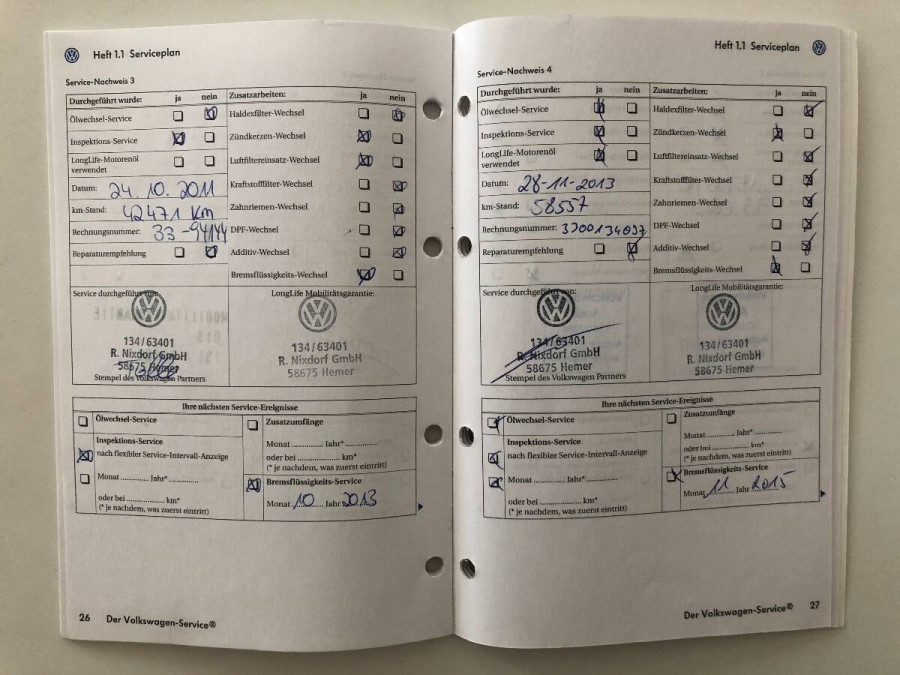 Heft 1.1 Serviceplan
Service-Nachweis 3
Durchgeführt wurde: ja nein
Ölwechsel-Service
Inspektions-Service
LongLife-Motorenöl
verwendet
Datum: 24.10.2011
km-Stand: 42471 km
Rechnungsnummer: 33-94144
Reparaturempfehlung
Zusatzarbeiten: ja nein
Haldexfilter-Wechsel
Zündkerzen-Wechsel
Luftfiltereinsatz-Wechsel
Kraftstofffilter-Wechsel
Zahnriemen-Wechsel
DPF-Wechsel
Additiv-Wechsel
Bremsflüssigkeits-Wechsel
Service durchgeführt von:
134/63401
R. Nixdorf GmbH
58675 Hemer
Stempel des Volkswagen Partners
LongLife Mobilitätsgarantie:
134/63401
R. Nixdorf GmbH
58675 Hemer
Ihre nächsten Service-Ereignisse
Ölwechsel-Service
Inspektions-Service
nach flexibler Service-Intervall-Anzeige
Monat ............ Jahr*............
oder bei ............ km*
(* je nachdem, was zuerst eintritt)
Zusatzumfänge
Monat ............ Jahr*............
oder bei ............ km*
(* je nachdem, was zuerst eintritt)
Bremsflüssigkeits-Service
Monat 10 Jahr 2013
26 Der Volkswagen-Service®
Heft 1.1 Serviceplan
Service-Nachweis 4
Durchgeführt wurde: ja nein
Ölwechsel-Service
Inspektions-Service
LongLife-Motorenöl
verwendet
Datum: 28-11-2013
km-Stand: 58557
Rechnungsnummer:
Reparaturempfehlung
Zusatzarbeiten: ja nein
Haldexfilter-Wechsel
Zündkerzen-Wechsel
Luftfiltereinsatz-Wechsel
Kraftstofffilter-Wechsel
Zahnriemen-Wechsel
DPF-Wechsel
Additiv-Wechsel
Bremsflüssigkeits-Wechsel
Service durchgeführt von:
134/63401
R. Nixdorf GmbH
58675 Hemer
Stempel des Volkswagen Partners
LongLife Mobilitätsgarantie:
134/63401
R. Nixdorf GmbH
58675 Hemer
Ihre nächsten Service-Ereignisse
Ölwechsel-Service
Inspektions-Service
nach flexibler Service-Intervall-Anzeige
Monat ............ Jahr*............
oder bei ............ km*
(* je nachdem, was zuerst eintritt)
Zusatzumfänge
Monat ............ Jahr*............
oder bei ............ km*
(* je nachdem, was zuerst eintritt)
Bremsflüssigkeits-Service
Monat 11 Jahr 2015
Der Volkswagen-Service® 27